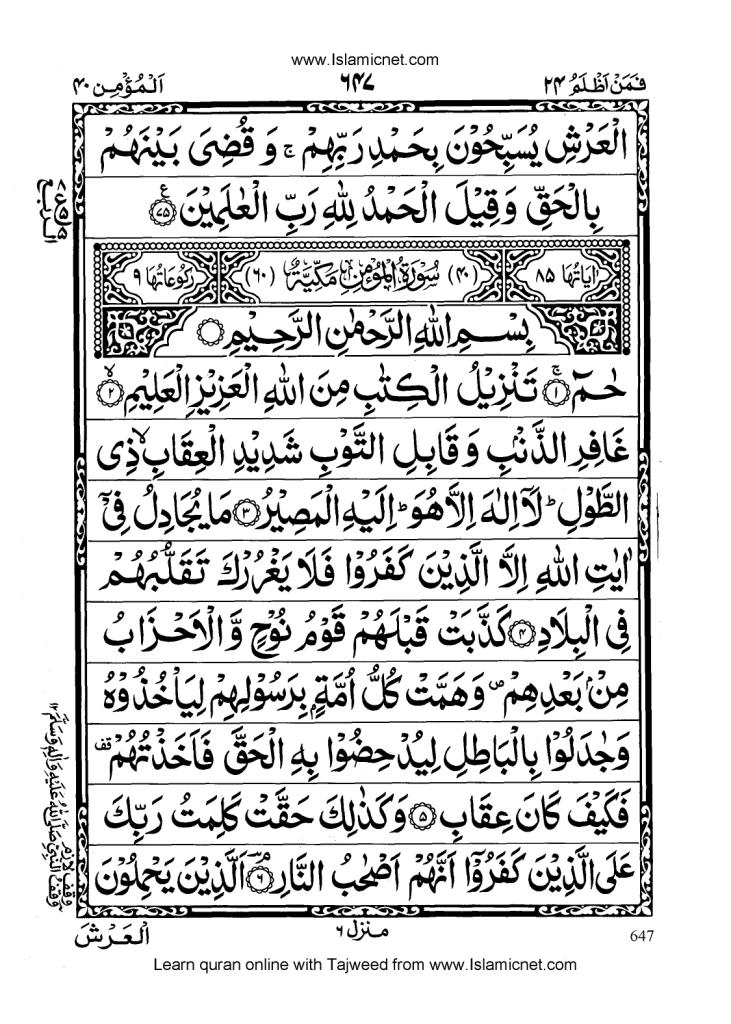 www.Islamicnet.com
فَمَنْ اَظْلَمُ ۲۴
۶۴۷
اَلْمُؤْمِن ۴۰
الْعَرْشِ يُسَبِّحُوْنَ بِحَمْدِ رَبِّهِمْ ۚ وَ قُضِىَ بَيْنَهُمْ
بِالْحَقِّ وَ قِيْلَ الْحَمْدُ لِلّٰهِ رَبِّ الْعٰلَمِيْنَ ۝۷۵ ع
الربع
اٰيَاتُهَا ۸۵
(۴۰) سُوْرَةُ الْمُؤْمِنِ مَكِّيَّةٌ (۶۰)
رُكُوْعَاتُهَا ۹
بِسْمِ اللّٰهِ الرَّحْمٰنِ الرَّحِيْمِ ۝
حٰمٓ ۝۱ۚ تَنْزِيْلُ الْكِتٰبِ مِنَ اللّٰهِ الْعَزِيْزِ الْعَلِيْمِ ۝۲ۙ
غَافِرِ الذَّنْۢبِ وَ قَابِلِ التَّوْبِ شَدِيْدِ الْعِقَابِ ۙ ذِى
الطَّوْلِ ؕ لَاۤ اِلٰهَ اِلَّا هُوَ ؕ اِلَيْهِ الْمَصِيْرُ ۝۳ مَا يُجَادِلُ فِىْۤ
اٰيٰتِ اللّٰهِ اِلَّا الَّذِيْنَ كَفَرُوْا فَلَا يَغْرُرْكَ تَقَلُّبُهُمْ
فِى الْبِلَادِ ۝۴ كَذَّبَتْ قَبْلَهُمْ قَوْمُ نُوْحٍ وَّ الْاَحْزَابُ
مِنْۢ بَعْدِهِمْ ۪ وَ هَمَّتْ كُلُّ اُمَّةٍۭ بِرَسُوْلِهِمْ لِيَاْخُذُوْهُ
وَ جٰدَلُوْا بِالْبَاطِلِ لِيُدْحِضُوْا بِهِ الْحَقَّ فَاَخَذْتُهُمْ قف
فَكَيْفَ كَانَ عِقَابِ ۝۵ وَ كَذٰلِكَ حَقَّتْ كَلِمَتُ رَبِّكَ
عَلَى الَّذِيْنَ كَفَرُوْۤا اَنَّهُمْ اَصْحٰبُ النَّارِ ۝۶ۘ اَلَّذِيْنَ يَحْمِلُوْنَ
وقف لازم
وقف النبي صَلَّى اللهُ عَلَيْهِ وَاٰلِهٖ وَسَلَّمَ ۱۲
منزل ۶
الْعَرْشَ
647
Learn quran online with Tajweed from www.Islamicnet.com